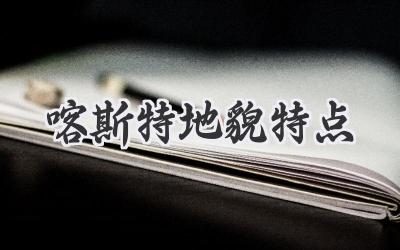 喀斯特地貌特点